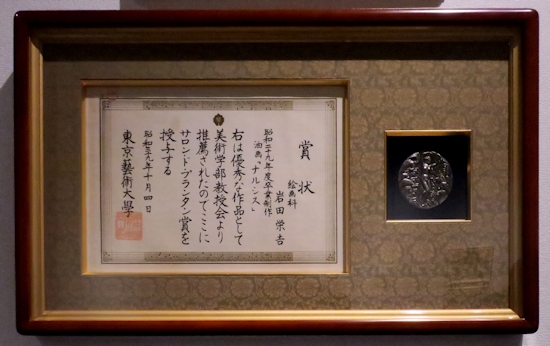 賞状
絵画科
岩田榮吉
昭和二十九年度卒業制作
油画「ナルシス」
右は優秀な作品として
美術学部教授会より
推薦されたのでここに
サロン・ド・プランタン賞を
授与する
昭和二九年十月四日
東京藝術大學